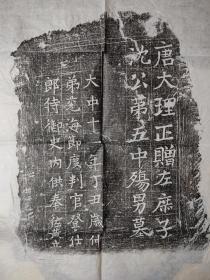 唐大理正贈左庶子
沈公第五中殤男墓
大中十一年丁丑歲仲
弟兖海節度判官登仕
郎侍御史內供奉